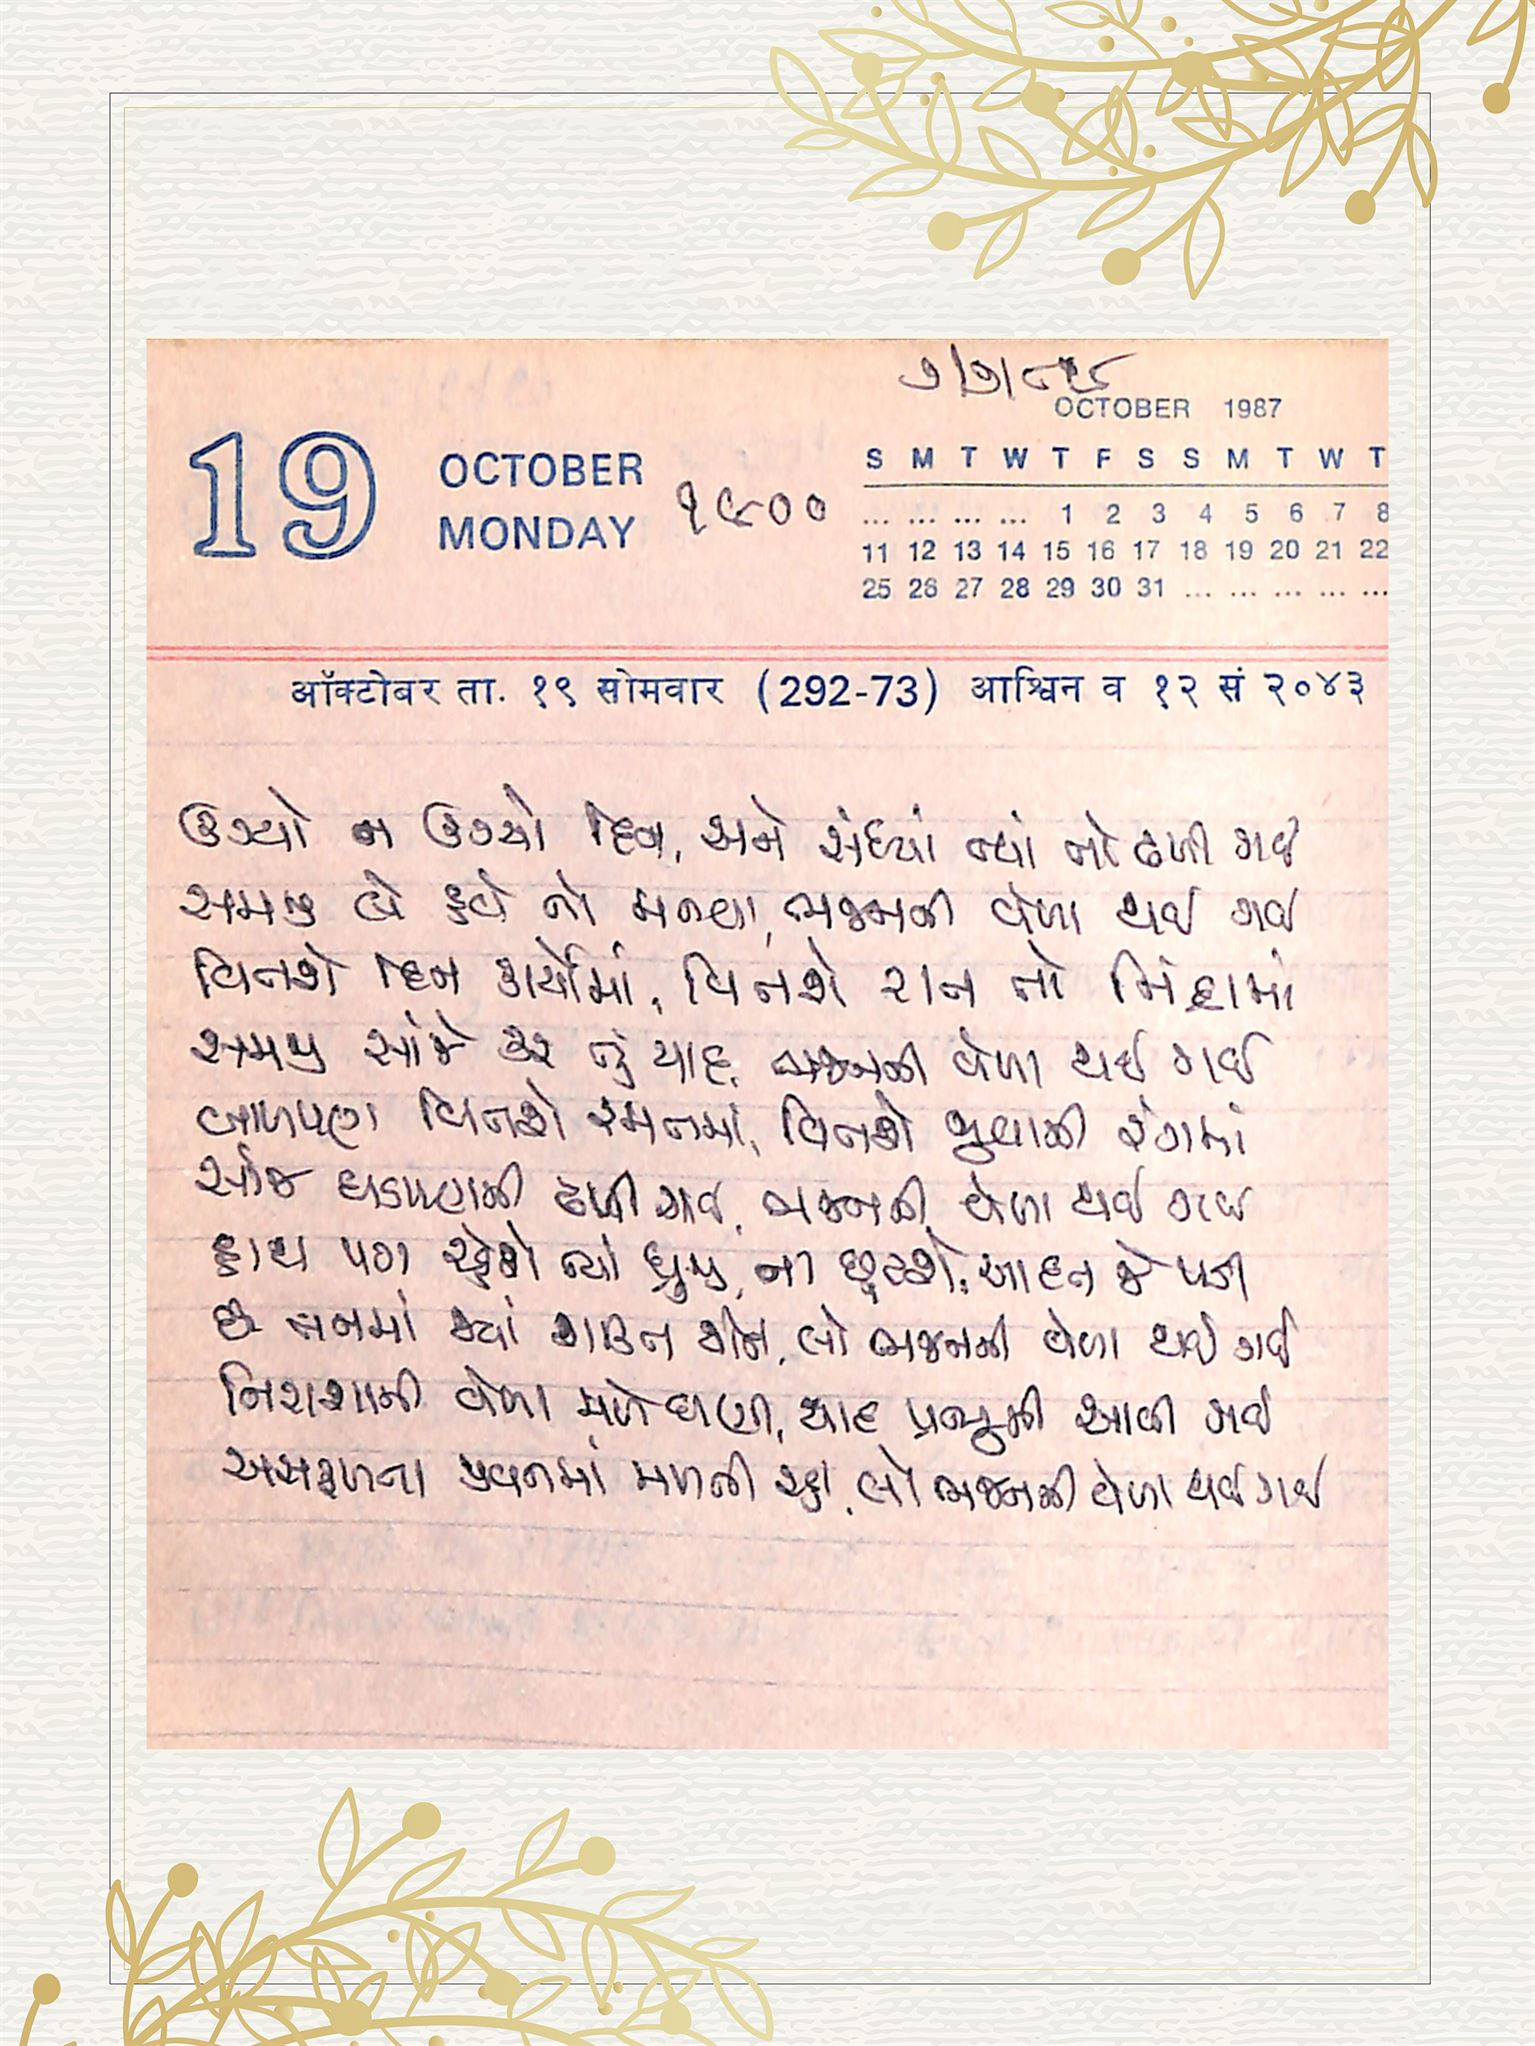 ૭/૭/૮૫
OCTOBER 1987
19 OCTOBER
MONDAY ૧૯૦૦
S M T W T F S S M T W T
... ... ... ... 1 2 3 4 5 6 7 8
11 12 13 14 15 16 17 18 19 20 21 22
25 26 27 28 29 30 31 ... ... ... ... ...
ऑक्टोबर ता. १९ सोमवार (292-73) आश्विन व १२ सं २०४३
ઉગ્યો ન ઉગ્યો દિન, અને સંધ્યાં ત્યાં તો ઢળી ગઈ
સમજી લે હવે તો મનવા, ભજનની વેળા થઈ ગઈ
વિતશે દિન કાર્યોમાં, વિતશે રાત તો નિંદ્રામાં
સમય સાંજે કર તું યાદ, ભજનની વેળા થઈ ગઈ
બાળપણ વિતશે રમતમાં, વિતશે જુવાની રંગમાં
સાંજ ઘડપણની ઢળી ગઈ, ભજનની વેળા થઈ ગઈ
હાથ પગ રહેશે ત્યાં ધ્રુજી, ના છૂટશે, આદત જે પડી
છે તનમાં જ્યાં શક્તિ, લો ભજનની વેળા થઈ ગઈ
નિરાશાની વેળા મળે ઘણી, યાદ પ્રભુની આવી ગઈ
અસફળતા જીવનમાં મળતી રહી, લો ભજનની વેળા થઈ ગઈ